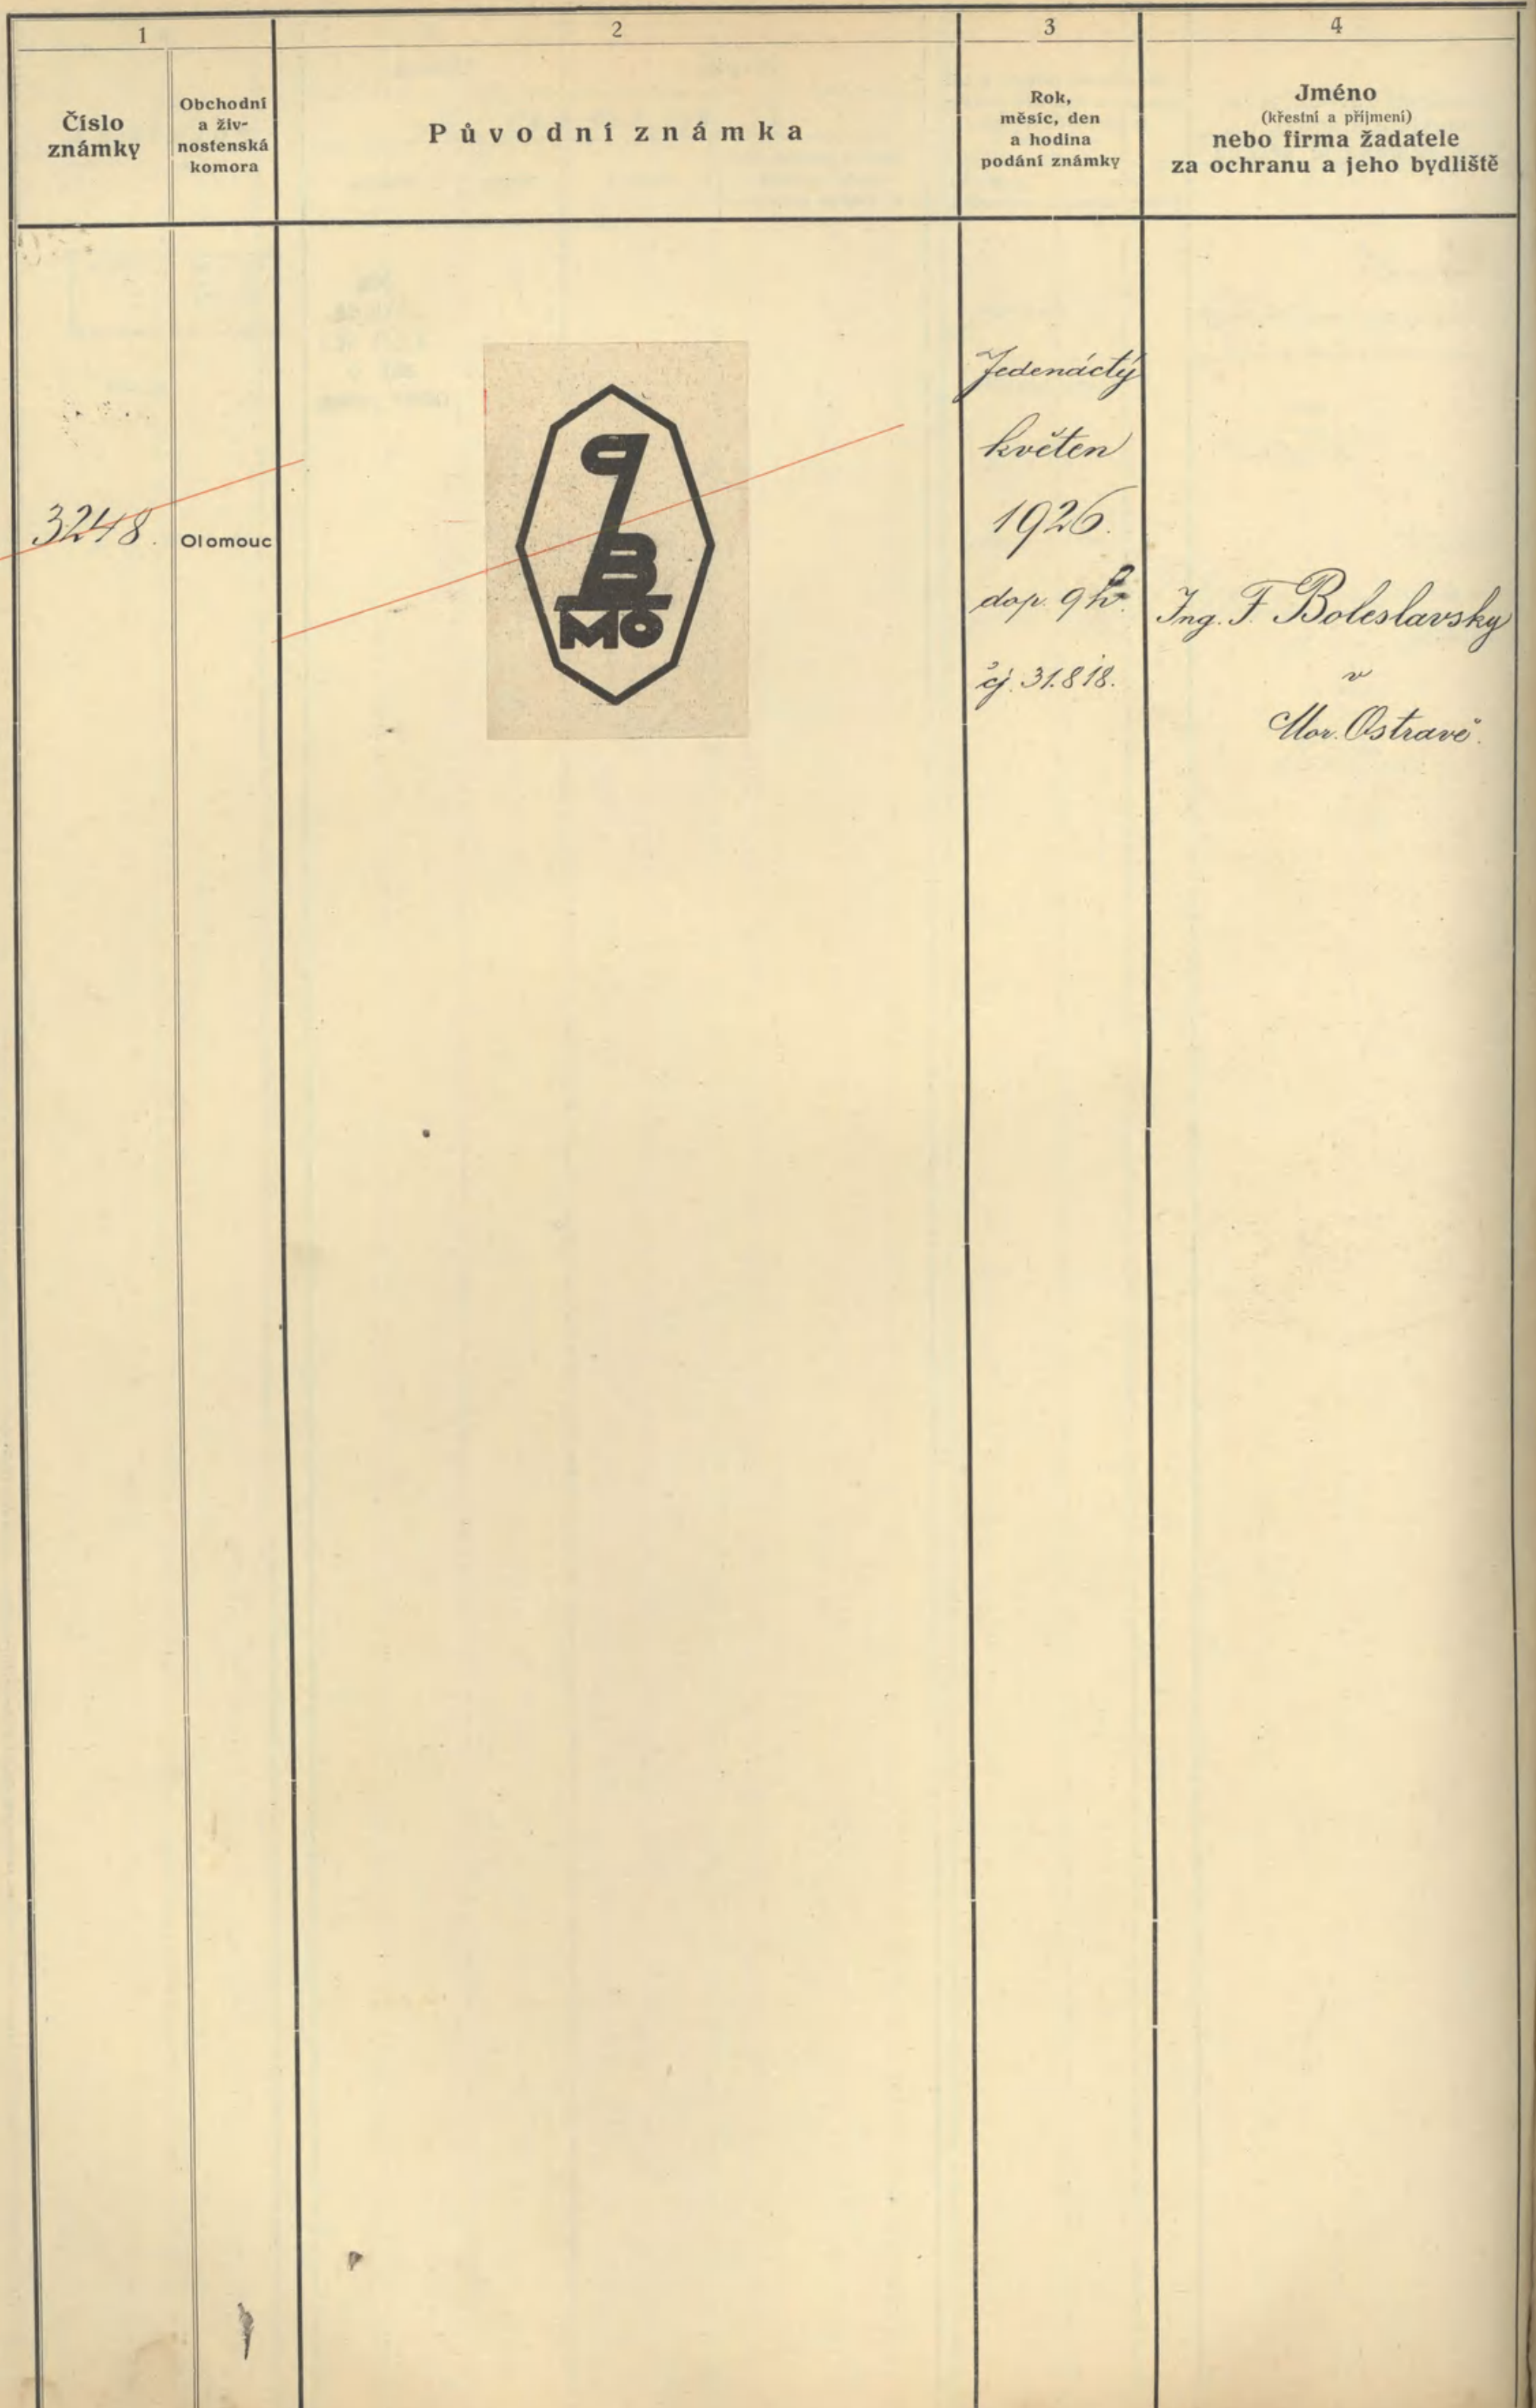 1
2
3
4
Číslo
známky
Obchodní
a živ-
nostenská
komora
Původní známka
Rok,
měsíc, den
a hodina
podání známky
Jméno
(křestní a příjmení)
nebo firma žadatele
za ochranu a jeho bydliště
3248.
Olomouc
B
MO
Jedenáctý
květen
1926.
dop. 9 h.
čj. 31.818.
Ing. F. Boleslavsky
v
Mor. Ostravě.